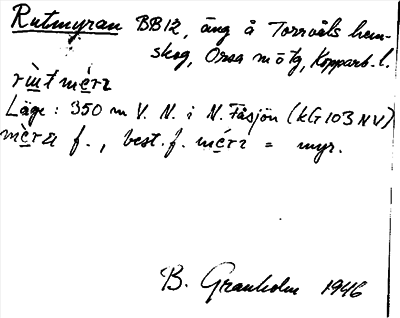 Rutmyran BB12, äng å Torrvåls hem-
skog, Orsa mötg, Kopparb. l.
rùtmérɩ
Läge: 350 m V. N. i N. Fåsjön (kG 103 NV)
mèra f., best. f. mérɩ = myr.
B. Granholm 1946